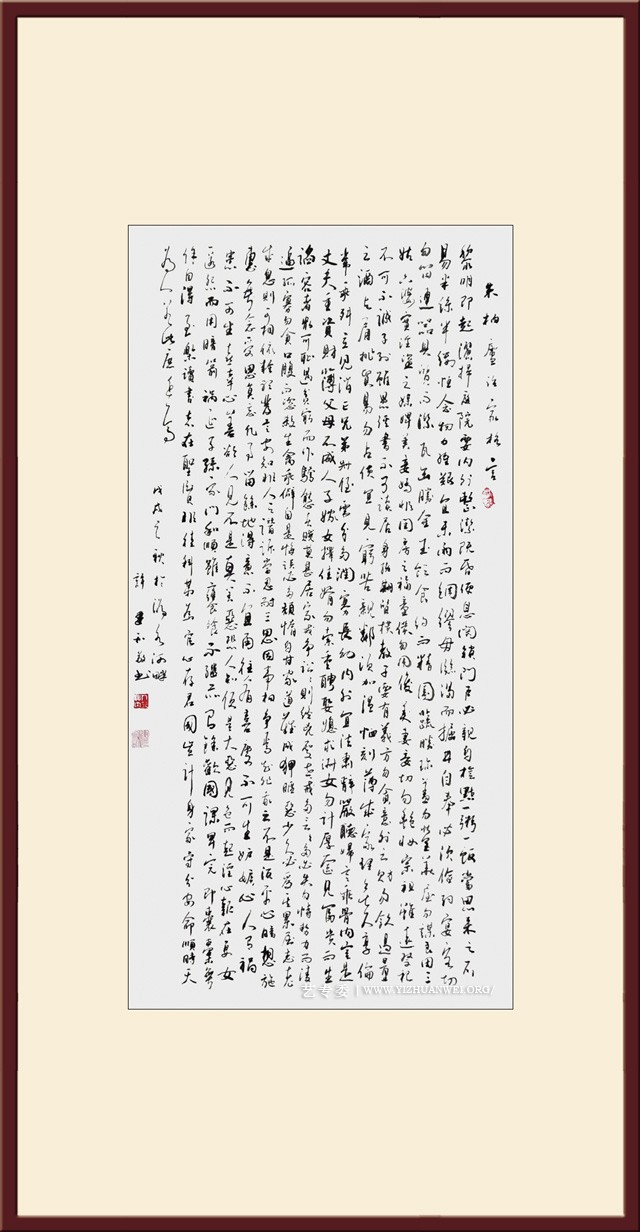 朱柏廬治家格言
黎明即起灑掃庭院要內外整潔既昏便息關鎖門戶必親自檢點一粥一飯當思來之不
易半絲半縷恆念物力維艱宜未雨而綢繆毋臨渴而掘井自奉必須儉約宴客切
勿留連器具質而潔瓦缶勝金玉飲食約而精園蔬勝珍羞勿營華屋勿謀良田三
姑六婆實淫盜之媒婢美妾嬌非閨房之福童僕勿用俊美妻妾切勿艷妝宗祖雖遠祭祀
不可不誠子孫雖愚經書不可不讀居身務期質樸教子要有義方勿貪意外之財勿飲過量
之酒與肩挑貿易勿占便宜見窮苦親鄰須加溫恤刻薄成家理無久享倫
常乖舛立見消亡兄弟叔侄需分多潤寡長幼內外宜法肅辭嚴聽婦言乖骨肉豈是
丈夫重資財薄父母不成人子嫁女擇佳婿勿索重聘娶媳求淑女勿計厚奩見富貴而生
諂容者最可恥遇貧窮而作驕態者賤莫甚居家戒爭訟訟則終凶處世戒多言言多必失勿恃勢力而凌
逼孤寡勿貪口腹而恣殺生禽乖僻自是悔誤必多頹惰自甘家道難成狎暱惡少久必受其累屈志老
成急則可相依輕聽發言安知非人之譖訴當忍耐三思因事相爭焉知非我之不是須平心暗想施
惠無念受恩莫忘凡事當留餘地得意不宜再往人有喜慶不可生妒嫉心人有禍
患不可生喜幸心善欲人見不是真善惡恐人知便是大惡見色而起淫心報在妻女
匿怨而用暗箭禍延子孫家門和順雖饔飧不繼亦有餘歡國課早完即囊橐無
餘自得至樂讀書志在聖賢非徒科第為官心存君國豈計身家守分安命順時天
為人若此庶乎近焉
戊戌之秋於水河畔
艺专委 | WWW.YIZHUANWEI.ORG/